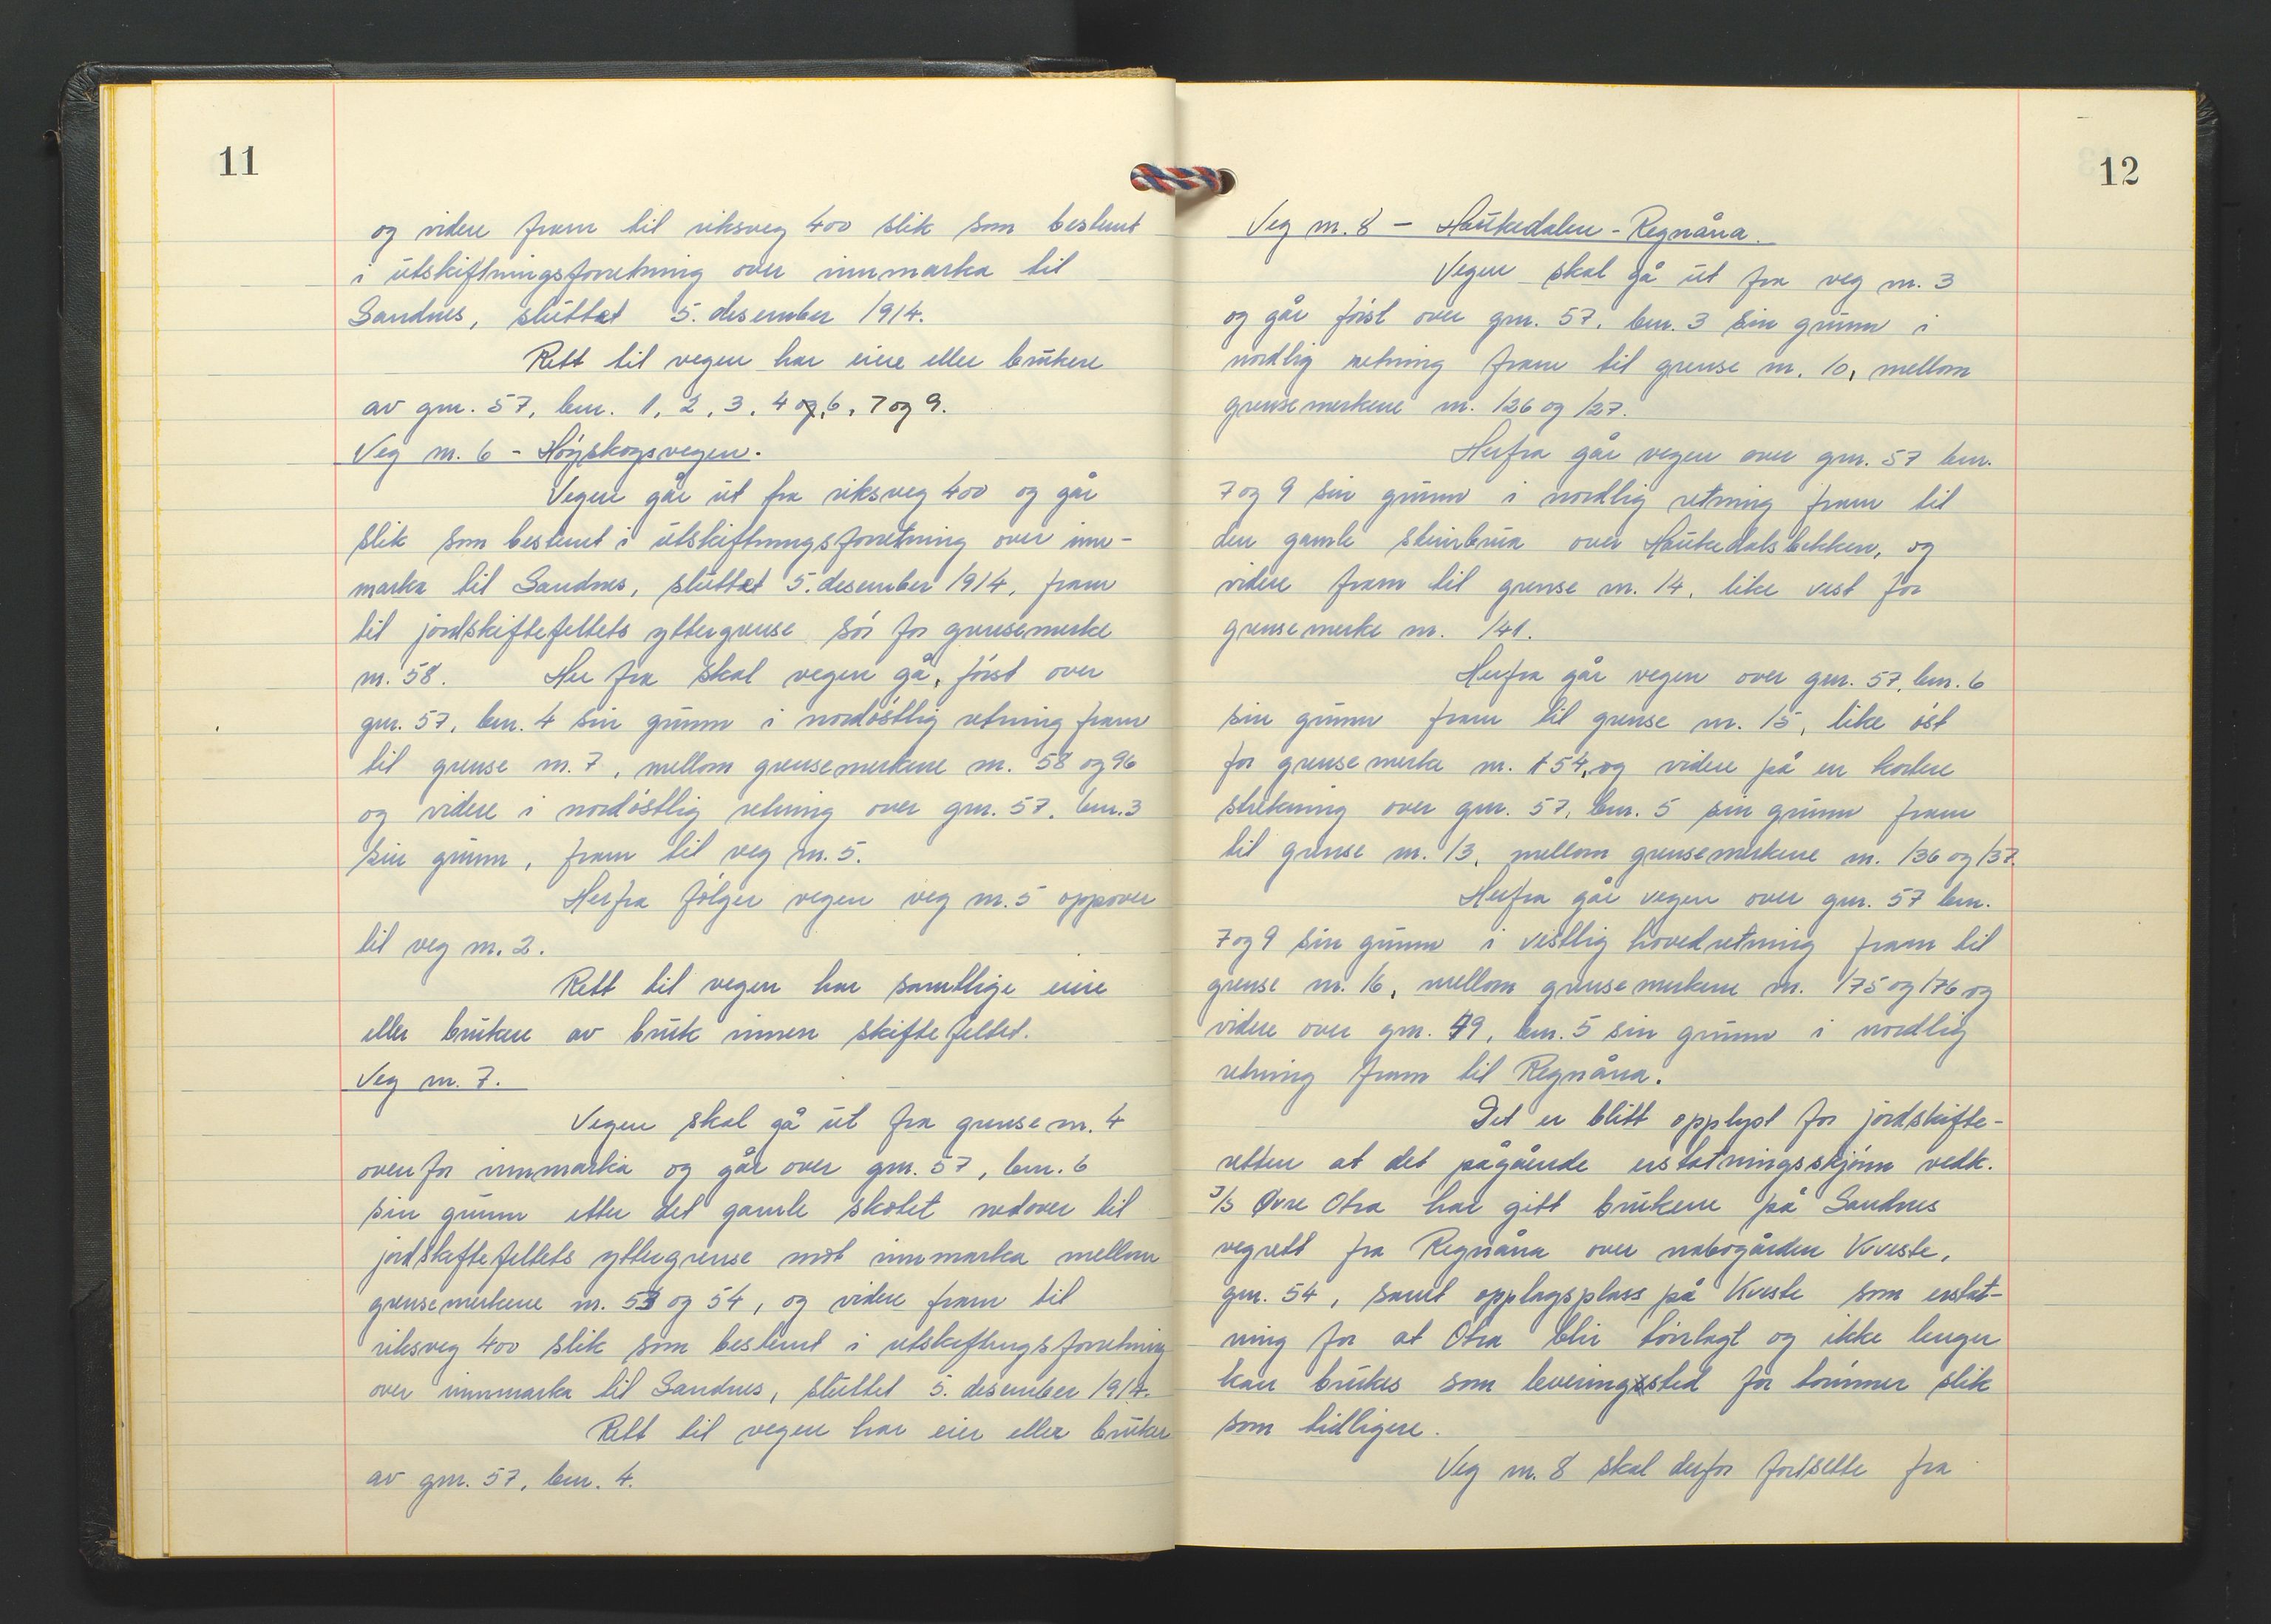 11
og videre fram til riksveg 400 slik som bestemt
i utskiftningsforretning over innmarka til
Sandnes, sluttet 5. desember 1914.
Rett til vegen har eiere eller brukere
av gnr. 57, bnr. 1, 2, 3, 4 og 6, 7 og 9.
Veg nr. 6 - Høgskogsvegen.
Vegen går ut fra riksveg 400 og går
slik som bestemt i utskiftningsforretning over inn-
marka til Sandnes, sluttet 5. desember 1914, fram
til jordskiftefeltets yttergrense sør for grensemerke
nr. 58. Her fra skal vegen gå, først over
gnr. 57, bnr. 4 sin grunn i nordøstlig retning fram
til grense nr. 7, mellom grensemerkene nr. 58 og 96
og videre i nordøstlig retning over gnr. 57, bnr. 3
sin grunn, fram til veg nr. 5.
Herfra følger vegen veg nr. 5 oppover
til veg nr. 2.
Rett til vegen har samtlige eiere
eller brukere av bruk innen skiftefeltet.
Veg nr. 7.
Vegen skal gå ut fra grense nr. 4
ovenfor innmarka og går over gnr. 57, bnr. 6
sin grunn etter det gamle skotet nedover til
jordskiftefeltets yttergrense mot innmarka mellom
grensemerkene nr. 53 og 54, og videre fram til
riksveg 400 slik som bestemt i utskiftningsforretning
over innmarka til Sandnes, sluttet 5. desember 1914.
Rett til vegen har eier eller bruker
av gnr. 57, bnr. 4.
12
Veg nr. 8 - Haukedalen - Regnåna.
Vegen skal gå ut fra veg nr. 3
og går først over gnr. 57, bnr. 3 sin grunn i
nordlig retning fram til grense nr. 10, mellom
grensemerkene nr. 126 og 127.
Herfra går vegen over gnr. 57 bnr.
7 og 9 sin grunn i nordlig retning fram til
den gamle steinbrua over Haukedalsbekken, og
videre fram til grense nr. 14, like vest for
grensemerke nr. 141.
Herfra går vegen over gnr. 57, bnr. 6
sin grunn fram til grense nr. 15, like øst
for grensemerke nr. 154, og videre på en kortere
strekning over gnr. 57, bnr. 5 sin grunn fram
til grense nr. 13, mellom grensemerkene nr. 136 og 137.
Herfra går vegen over gnr. 57 bnr.
7 og 9 sin grunn i vestlig hovedretning fram til
grense nr. 16, mellom grensemerkene nr. 175 og 176 og
videre over gnr. 49, bnr. 5 sin grunn i nordlig
retning fram til Regnåna.
Det er blitt opplyst for jordskifte-
retten at det pågående erstatningsskjønn vedk.
I/S Øvre Otra har gitt brukene på Sandnes
vegrett fra Regnåna over nabogården Kveste,
gnr. 54, samt opplagsplass på Kveste som erstat-
ning for at Otra blir tørrlagt og ikke lenger
kan brukes som leveringssted for tømmer slik
som tidligere.
Veg nr. 8 skal derfor fortsette fra